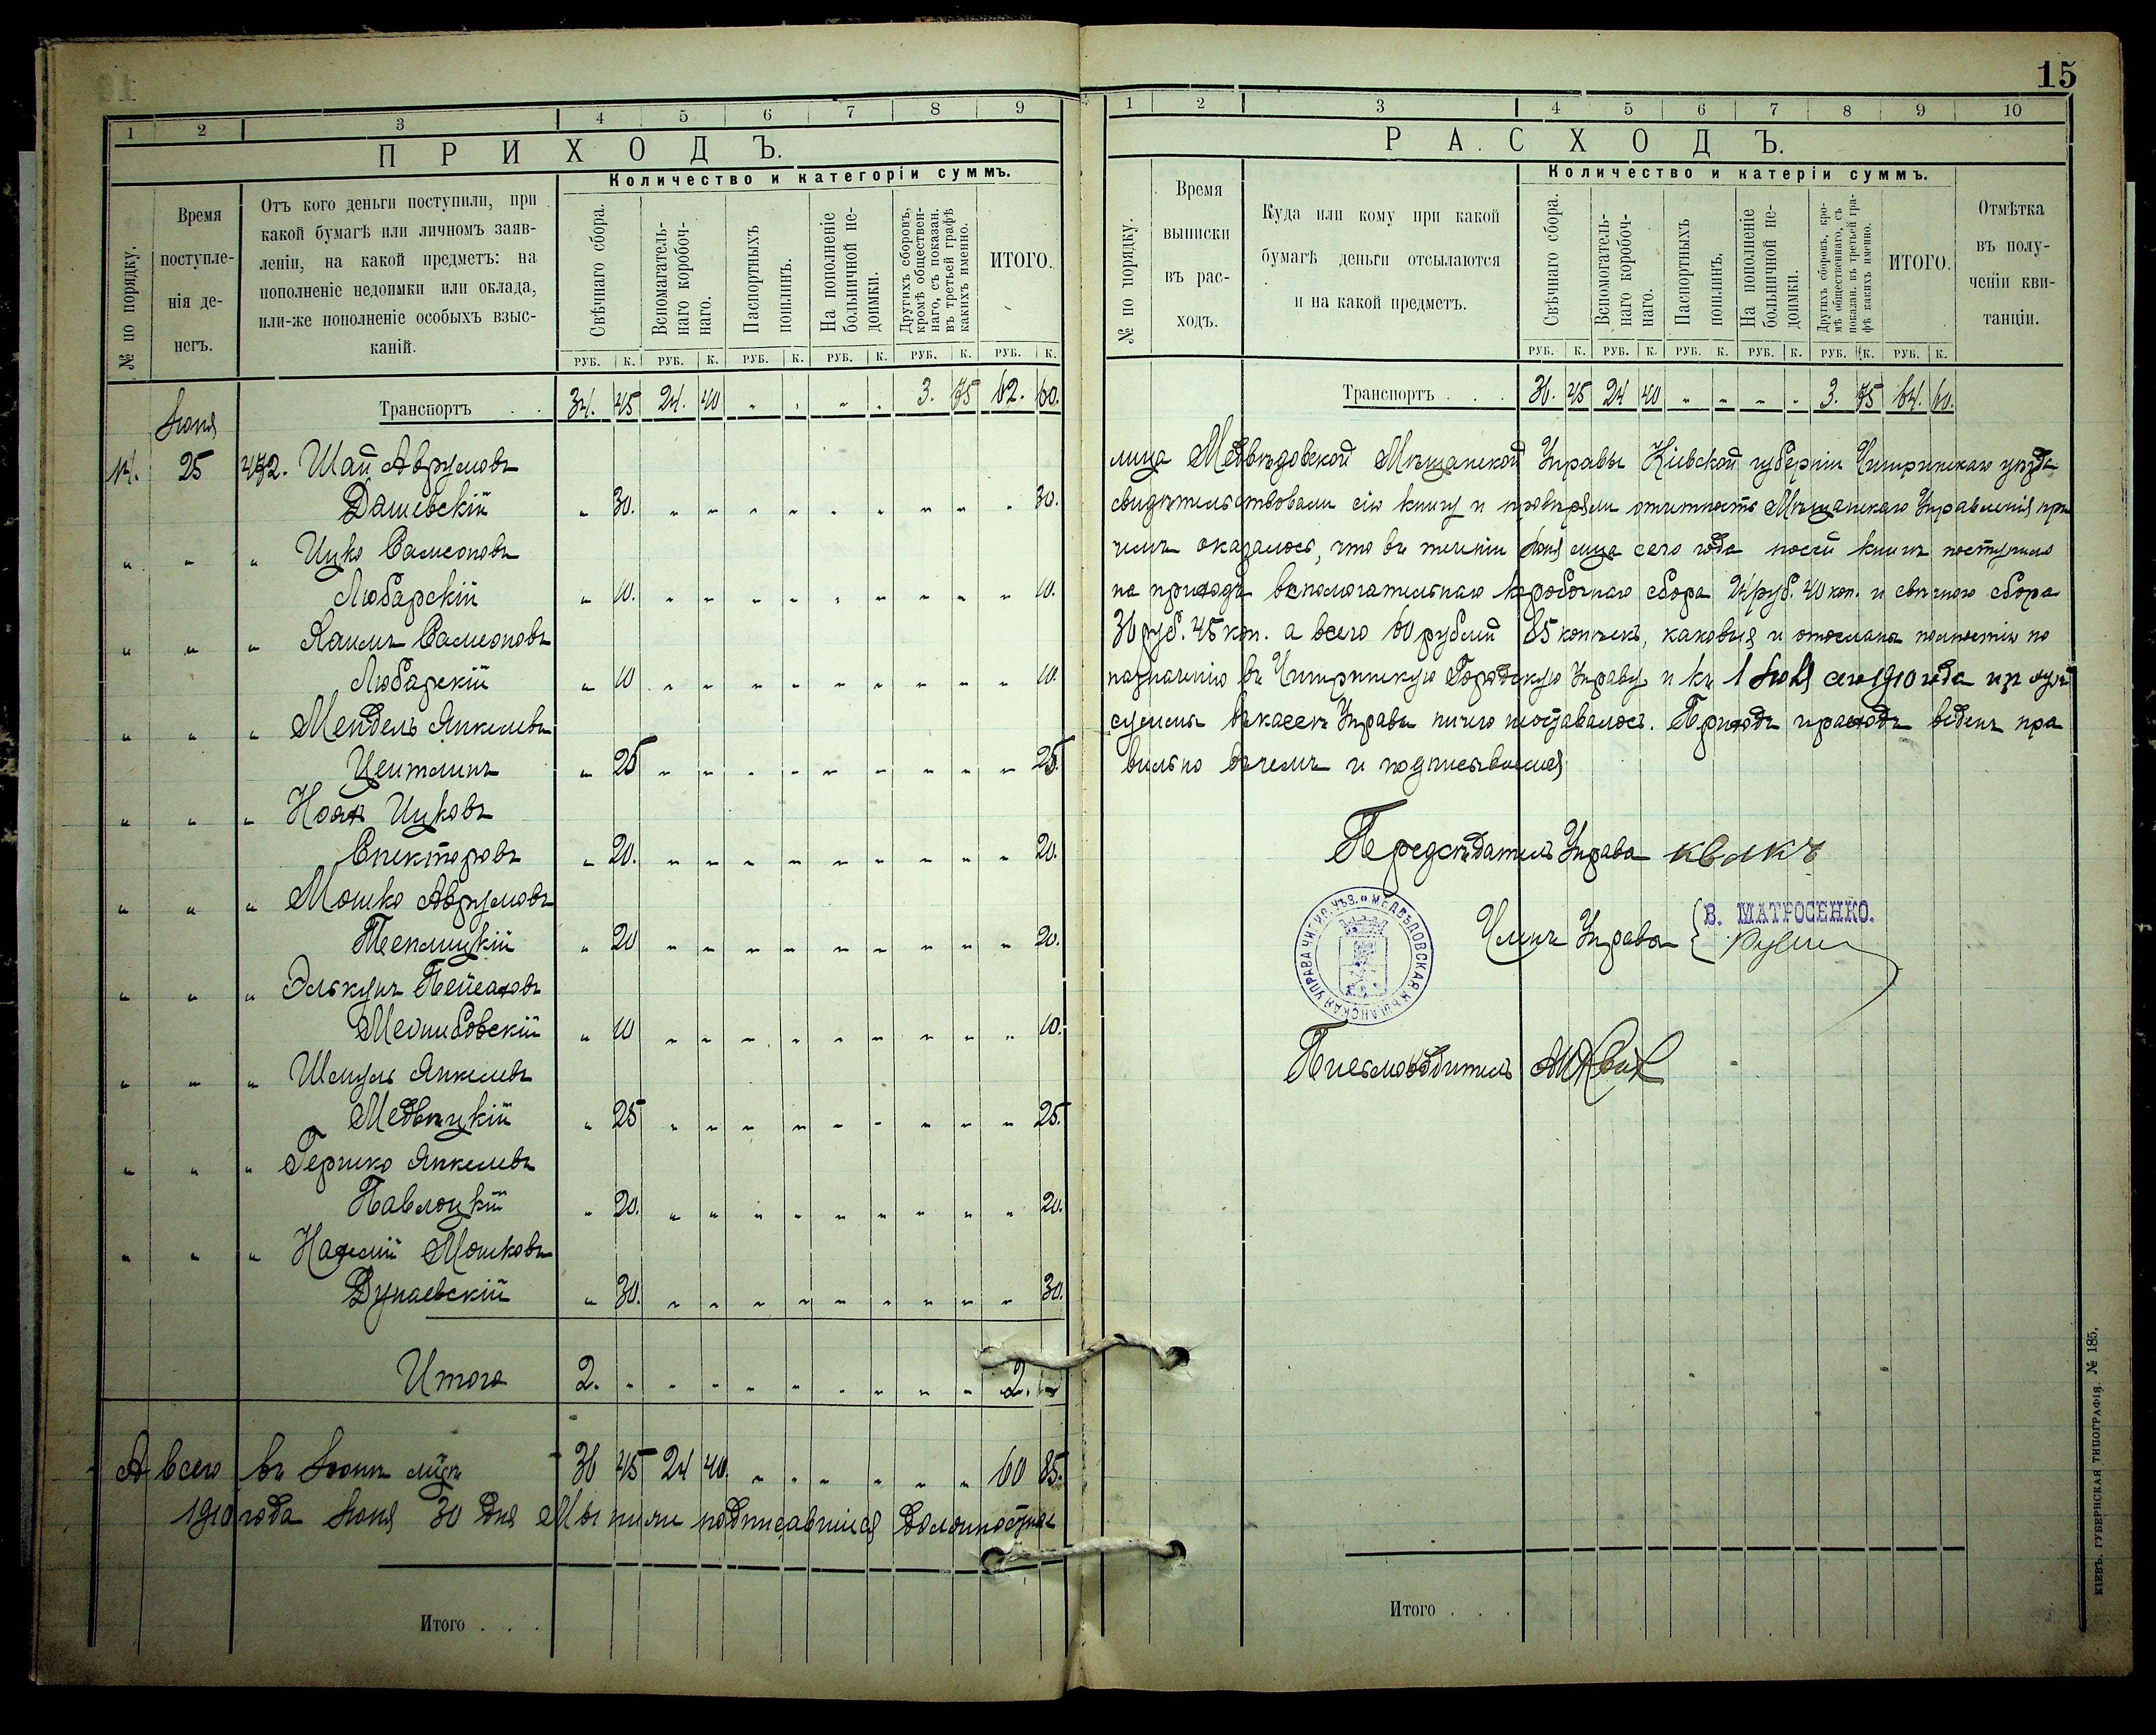 15
1 2 3 4 5 6 7 8 9
ПРИХОДЪ.
Количество и категоріи суммъ.
№ по порядку.
Время
поступле-
нія де-
негъ.
Отъ кого деньги поступили, при
какой бумагѣ или личномъ заяв-
леніи, на какой предметъ: на
пополненіе недоимки или оклада,
или-же пополненіе особыхъ взыс-
каній.
Свѣчнаго сбора.
Вспомагатель-
наго коробоч-
наго.
Паспортныхъ
пошлинъ.
На пополненіе
больничной не-
доимки.
Другихъ сборовъ,
кромѣ обществен-
наго, съ показан.
въ третьей графѣ
какихъ именно.
ИТОГО.
РУБ. К. РУБ. К. РУБ. К. РУБ. К. РУБ. К. РУБ. К.
Транспортъ . . 34. 45 24. 40 „ „ „ „ 3. 75 62. 60.
Іюня
14. 25 472. Шая Аврумовъ
Дашевскій „ 30. „ „ „ „ „ „ „ „ „ 30.
„ „ „ Ицко Самсоновъ
Любарскій „ 10. „ „ „ „ „ „ „ „ „ 10.
„ „ „ Хаимъ Самсоновъ
Любарскій „ 10 „ „ „ „ „ „ „ „ „ 10.
„ „ „ Мендель Янкелевъ
Цейтлинъ „ 25 „ „ „ „ „ „ „ „ „ 25.
„ „ „ Ицковъ
Спекторовъ „ 20. „ „ „ „ „ „ „ „ „ 20.
„ „ „ Мошко Аврумовъ
Теплицкій „ 20 „ „ „ „ „ „ „ „ „ 20.
„ „ „ Элькунъ Пейсаховъ
„ 10 „ „ „ „ „ „ „ „ „ 10.
„ „ „ Шмуль Янкелевъ
Медвицкій „ 25 „ „ „ „ „ „ „ „ „ 25.
„ „ „ Гершко Янкелевъ
Павлоцкій „ 20. „ „ „ „ „ „ „ „ „ 20.
„ „ „ Мошковъ
Дунаевскій „ 30. „ „ „ „ „ „ „ „ „ 30.
Итого 2. „ „ „ „ „ „ „ „ „ 2. „
А всего въ Іюнѣ м-цѣ 36 45 24 40. „ „ „ „ „ „ 60 85.
1910 года Іюня 30 дня Мы ниже подписавшіися должностные
Итого . . .
1 2 3 4 5 6 7 8 9 10
РАСХОДЪ.
Количество и катеріи суммъ.
№ по порядку.
Время
выписки
въ рас-
ходъ.
Куда или кому при какой
бумагѣ деньги отсылаются
и на какой предметъ.
Свѣчнаго сбора.
Вспомогатель-
наго коробоч-
наго.
Паспортныхъ
пошлинъ.
На пополненіе
больничной не-
доимки.
Другихъ сборовъ, кро-
мѣ общественнаго, съ
показан. въ третьей гра-
фѣ какихъ именно.
ИТОГО.
Отмѣтка
въ полу-
ченіи кви-
танціи.
РУБ. К. РУБ. К. РУБ. К. РУБ. К. РУБ. К. РУБ. К.
Транспортъ . . . 36. 45 24 40 „ „ „ „ 3. 75 64. 60.
лица Медвѣдовской Мѣщанской Управы Кіевской губерніи Чигиринскаго уѣзда
свидѣтельствовали сію книгу и провѣряли отчетность Мѣщанскаго Управленія при
чемъ оказалось, что въ теченіи Іюня м-ца сего года по сей книгѣ поступило
на приходъ вспомогательнаго коробочнаго сбора 24 руб. 40 коп. и свѣчного сбора
36 руб. 45 коп. а всего 60 рублей 85 копѣекъ, каковыя и отосланы полностію по
назначенію въ Чигиринскую Городскую Управу и къ 1 Іюля сего 1910 года
суммъ въ кассѣ Управы ничего не оставалось. Приходъ и расходъ веденъ пра
вильно въ чемъ и подписываемся
Предсѣдатель Управы Квакъ
Члены Управы { В. МАТРОСЕНКО.
МЕДВѢДОВСКАЯ МѢЩАНСКАЯ УПРАВА ЧИГИР. УѢЗ.
Письмоводитель
Итого . . .
КІЕВЪ. ГУБЕРНСКАЯ ТИПОГРАФІЯ. № 185.